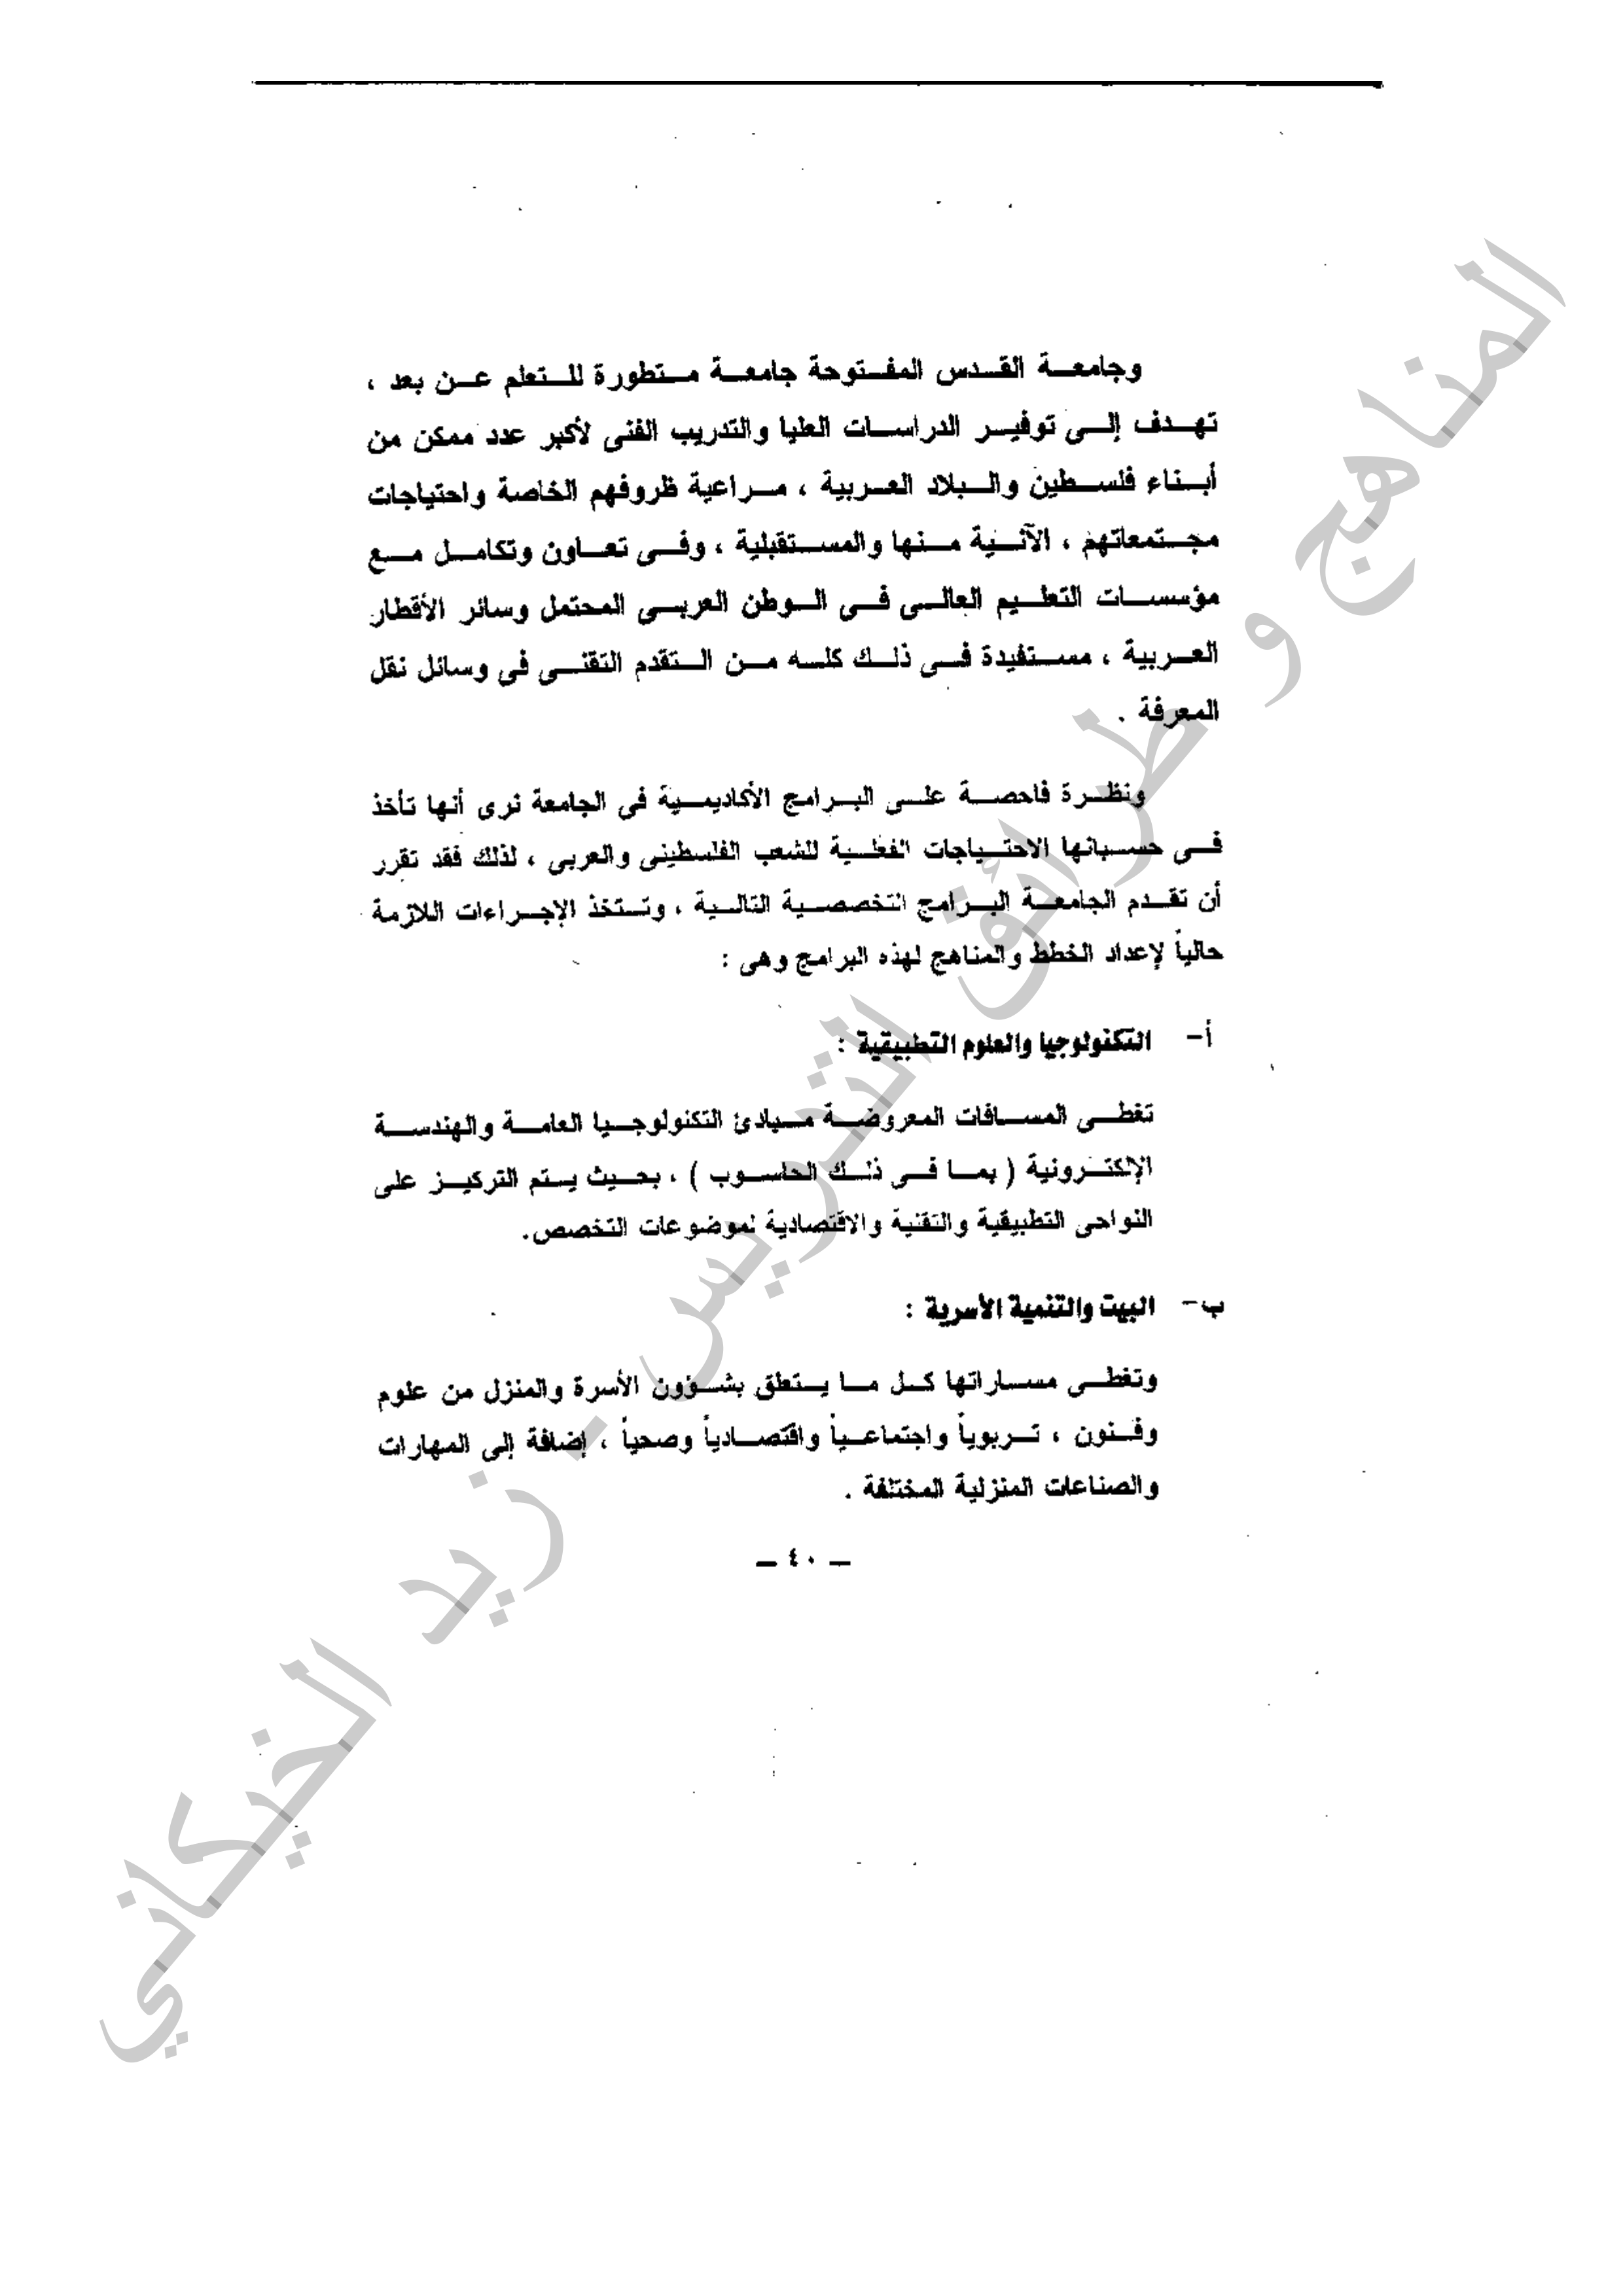 وجامعة القدس المفتوحة جامعة متطورة للتعلم عن بعد ،
تهدف إلى توفير الدراسات العليا والتدريب الفنى لأكبر عدد ممكن من
أبناء فلسطين والبلاد العربية ، مراعية ظروفهم الخاصة واحتياجات
مجتمعاتهم ، الآنية منها والمستقبلية ، وفى تعاون وتكامل مع
مؤسسات التعليم العالى فى الوطن العربى المحتمل وسائر الأقطار
العربية ، مستفيدة فى ذلك كله من التقدم التقنى فى وسائل نقل
المعرفة .
ونظرة فاحصة على البرامج الأكاديمية فى الجامعة نرى أنها تأخذ
فى حسبانها الاحتياجات الفعلية للشعب الفلسطينى والعربى ، لذلك فقد تقرر
أن تقدم الجامعة البرامج التخصصية التالية ، وتستخذ الإجراءات اللازمة
حالياً لإعداد الخطط والمناهج لهذه البرامج وهى :
أ- التكنولوجيا والعلوم التطبيقية :
تغطى المسافات المعروضة مبادئ التكنولوجيا العامة والهندسة
الإلكترونية ( بما فى ذلك الحاسوب ) ، بحيث يستم التركيز على
النواحى التطبيقية والتقنية والاقتصادية لموضوعات التخصص.
ب- البيت والتنمية الأسرية :
وتغطى مساراتها كل ما يتعلق بشؤون الأسرة والمنزل من علوم
وفنون ، تربوياً واجتماعياً واقتصادياً وصحياً ، إضافة إلى المهارات
والصناعات المنزلية المختلفة .
ــ ٤٠ ــ
المناهج و طرائق التدريس - زيد الخيكاني